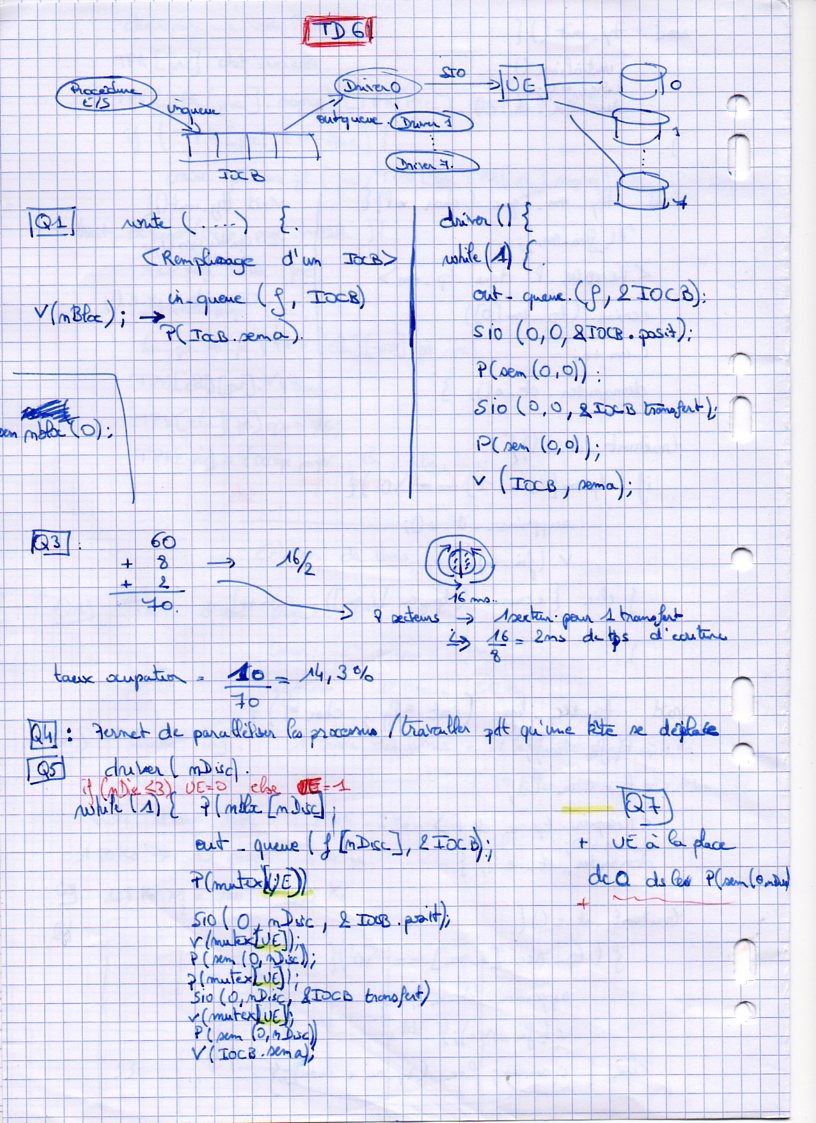 TD 6
Procédure E/S
inqueue
IOCB
outqueue
Driver 0
Driver 1
Driver 7
SIO
UE
0
1
7
Q1
write (.....) {
<Remplissage d'un IOCB>
in-queue (f, IOCB)
V(nBloc); →
P(IOCB.sema).
sem nbloc (0);
driver () {
while (1) {
out-queue (f, &IOCB);
Sio (0,0, &IOCB.posit);
P(sem(0,0));
Sio (0,0, &IOCB transfert);
P(sem (0,0));
V (IOCB, sema);
Q3 :
60
+ 8 → 16/2
+ 2
70.
16 ms.
8 secteurs → 1 secteur pour 1 transfert
16/8 = 2ms de tps d'écriture
taux ocupation = 10/70 = 14,3%
Q4 : Permet de paralléliser les processus / travailler pdt qu'une tête se déplace
Q5 driver ( nDisc).
if (nDisc ≤3) UE=0 else UE=1
while (1) { P(nbloc [nDisc];
out-queue (f [nDisc], &IOCB);
P(mutex[UE])
Sio (0, nDisc, & IOCB.posit);
V(mutex[UE]);
P(sem (0, nDisc));
P(mutex[UE]);
Sio (0, nDisc, &IOCB transfert)
V(mutex[UE];
P(sem (0, nDisc))
V(IOCB.sema);
Q7
+ UE à la place
de 0 ds les P(sem(0,nDisc)
+